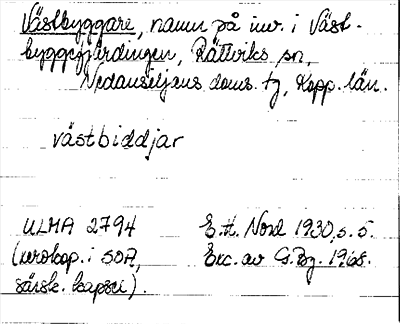 Västbyggare, namn på inv. i Väst-
byggefjärdingen, Rättviks sn,
Nedansiljans doms. tg, Kopp. län.
västbiddjar
ULMA 2794 E.H. Nord 1930, s. 5.
(xerokop. i SOA, Exc. av G.Bg. 1968.
särsk. kapsel).